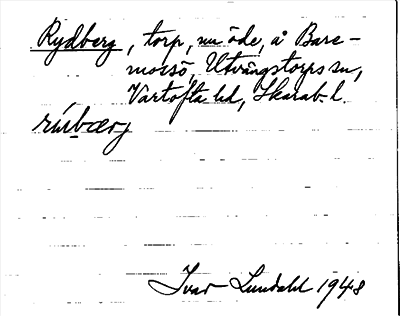 Rydberg, torp, nu öde, å Bare-
mosse, Utvängstorps sn,
Vartofta hd, Skarab. l.
rúbærj
Ivar Lundahl 1948